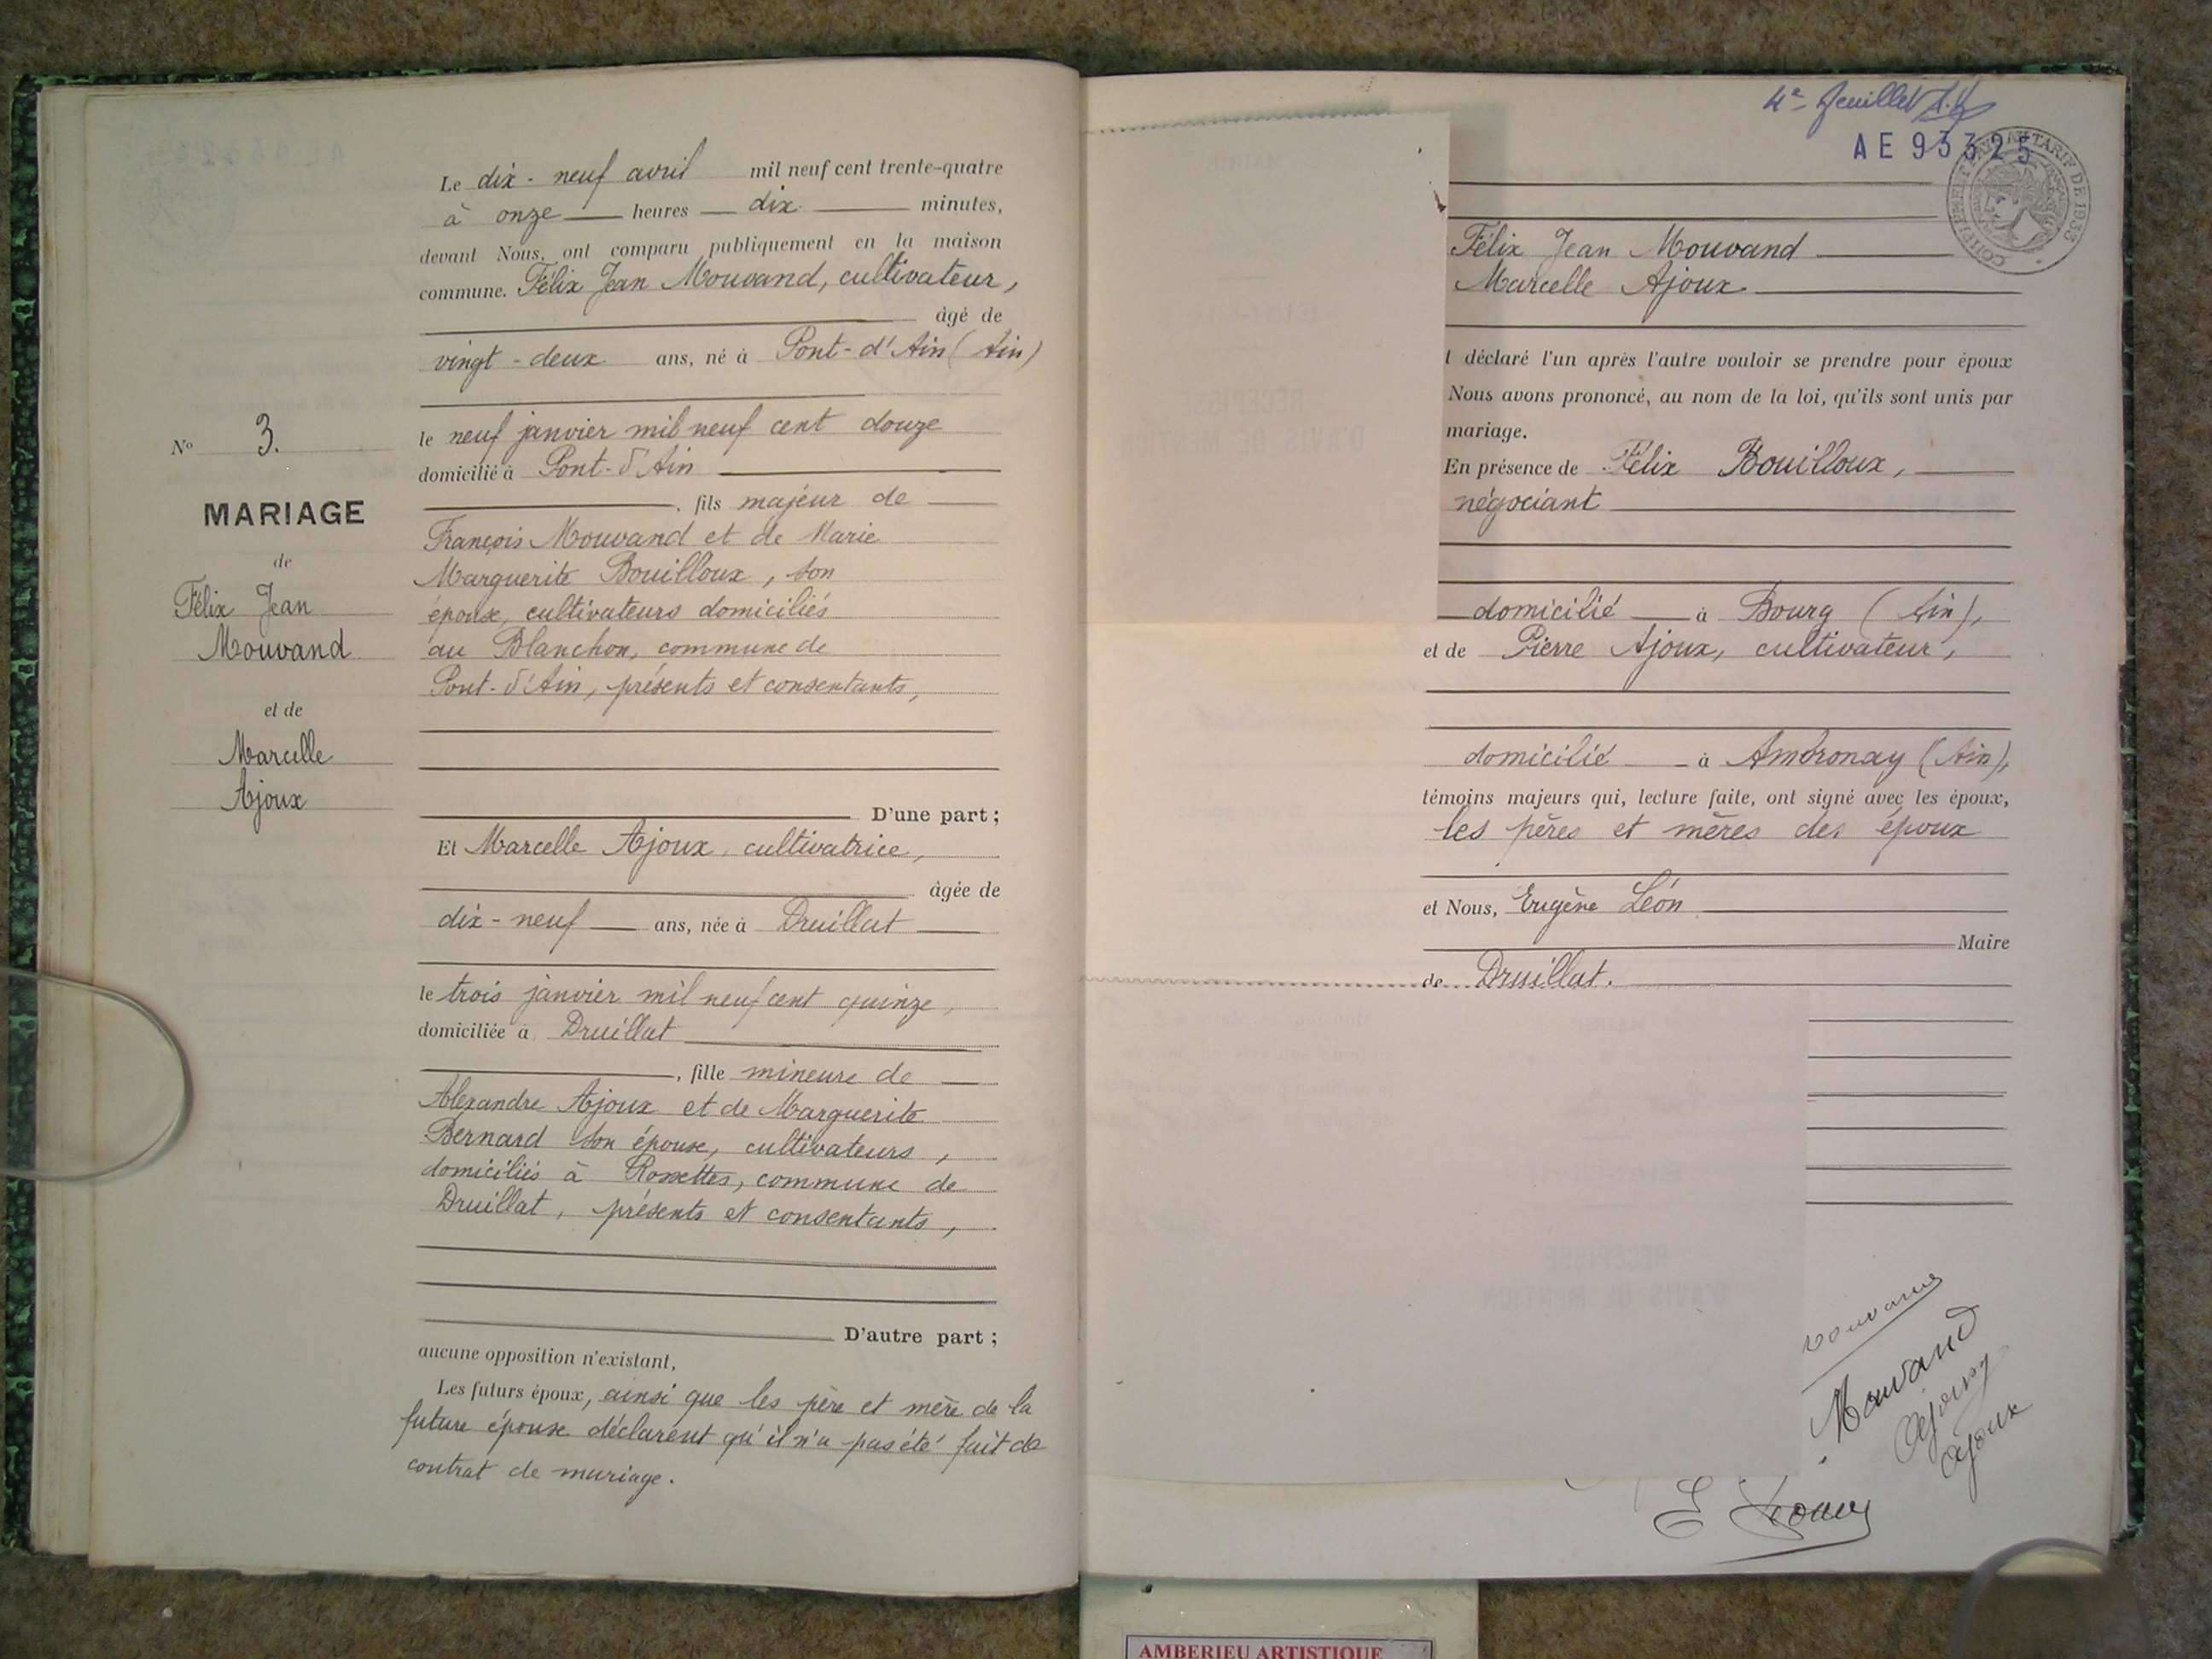 Nº 3.
MARIAGE
de
Félix Jean
Mouvand
et de
Marcelle
Ajoux
Le dix-neuf avril mil neuf cent trente-quatre
à onze heures dix minutes,
devant Nous, ont comparu publiquement en la maison
commune. Félix Jean Mouvand, cultivateur,
âgé de
vingt-deux ans, né à Pont-d'Ain (Ain)
le neuf janvier mil neuf cent douze
domicilié à Pont-d'Ain
, fils majeur de
François Mouvand et de Marie
Marguerite Bouilloux, son
épouse, cultivateurs domiciliés
au Blanchon, commune de
Pont-d'Ain, présents et consentants,
D'une part;
Et Marcelle Ajoux, cultivatrice,
âgée de
dix-neuf ans, née à Druillat
le trois janvier mil neuf cent quinze,
domiciliée à Druillat
, fille mineure de
Alexandre Ajoux et de Marguerite
Bernard son épouse, cultivateurs,
domiciliés à Rossettes, commune de
Druillat, présents et consentants,
D'autre part;
aucune opposition n'existant,
Les futurs époux, ainsi que les père et mère de la
future épouse déclarent qu'il n'a pas été fait de
contrat de mariage.
4e feuillet
AE 93325
TARIF DE 1933
Félix Jean Mouvand
Marcelle Ajoux
t déclaré l'un après l'autre vouloir se prendre pour époux
Nous avons prononcé, au nom de la loi, qu'ils sont unis par
mariage.
En présence de Félix Bouilloux,
négociant
domicilié à Bourg (Ain),
et de Pierre Ajoux, cultivateur,
domicilié à Ambronay (Ain),
témoins majeurs qui, lecture faite, ont signé avec les époux,
les pères et mères des époux
et Nous, Eugène Léon
Maire
de Druillat.
Mouvand
Ajoux
ajoux
AMBERIEU ARTISTIQUE